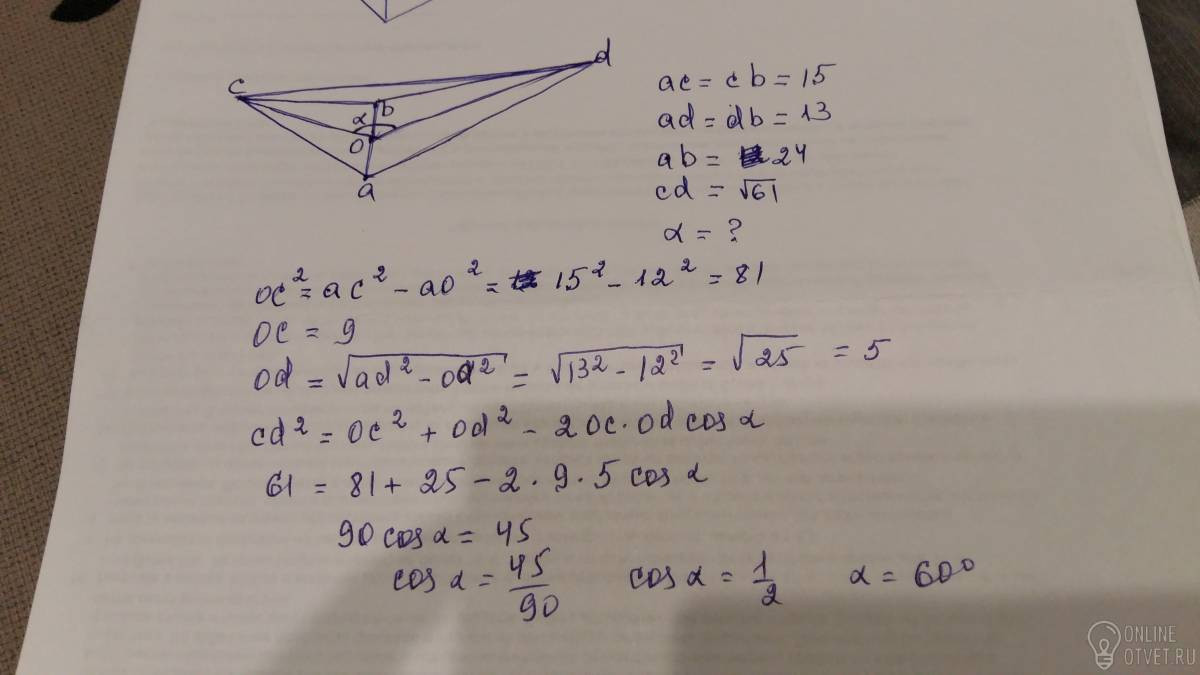 c
d
b
α
o
a
ac = cb = 15
ad = db = 13
ab = 24
cd = √61
α = ?
oc² = ac² - ao² = 15² - 12² = 81
oc = 9
od = √ad² - oa² = √13² - 12² = √25 = 5
cd² = oc² + od² - 2 oc · od cos α
61 = 81 + 25 - 2 · 9 · 5 cos α
90 cos α = 45
cos α = 45/90 cos α = 1/2 α = 60°
ONLINE
OTVET.RU